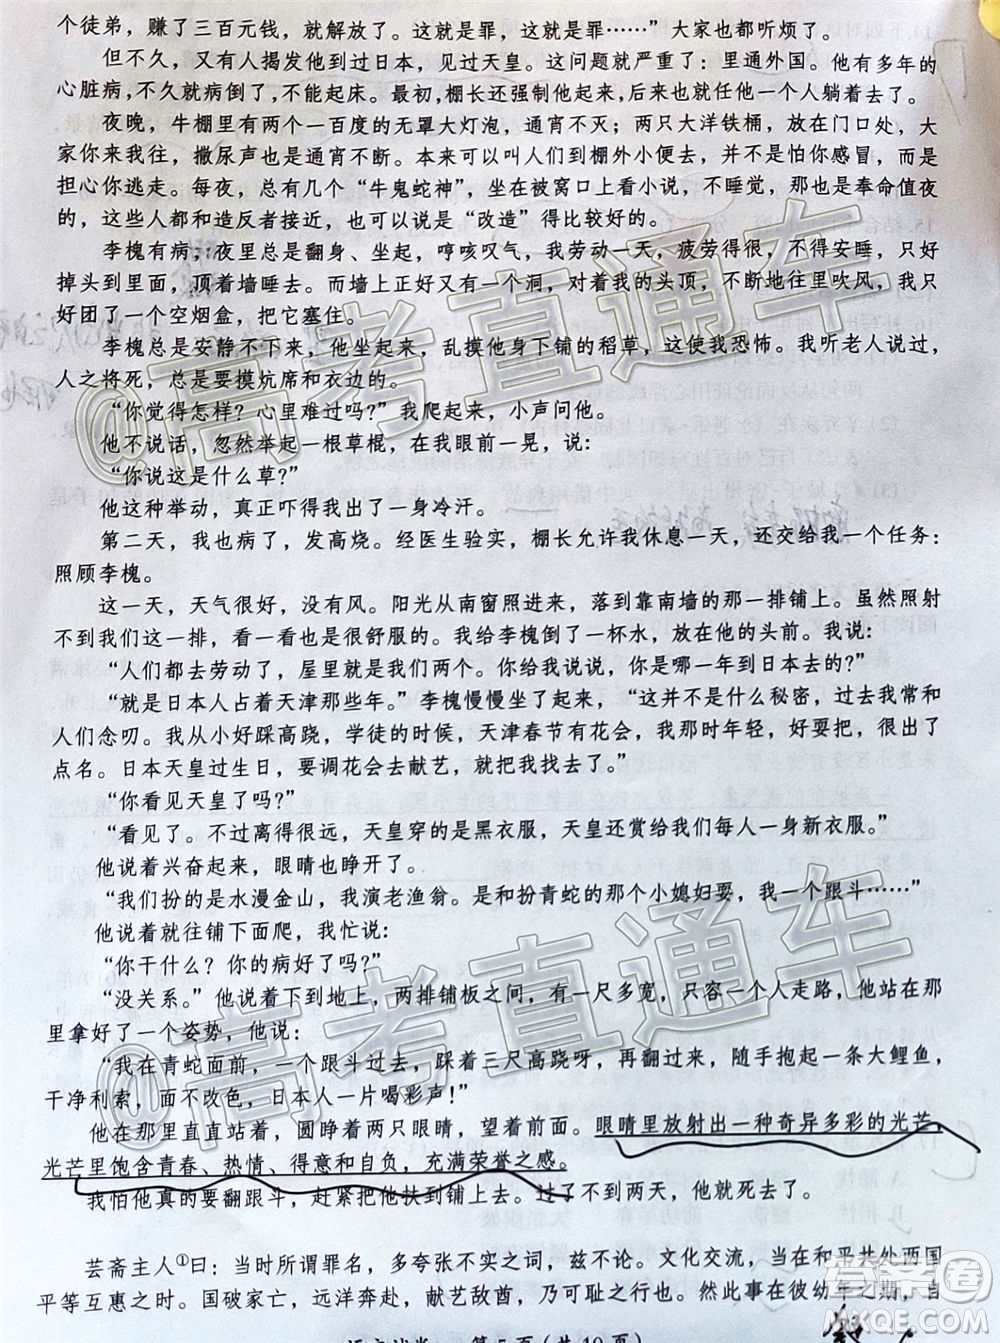 个徒弟，赚了三百元钱，就解放了。这就是罪，这就是罪……”大家也都听烦了。
但不久，又有人揭发他到过日本，见过天皇。这问题就严重了：里通外国。他有多年的
心脏病，不久就病倒了，不能起床。最初，棚长还强制他，后来也就任他一个人躺着去了。
夜晚，牛棚里有两个一百度的无罩大灯泡，通宵不灭；两只大洋铁桶，放在门口处，大
家你来我往，撒尿声也是通宵不断。本来可以叫人们到棚外小便去，并不是怕你感冒，而是
担心你逃走。每夜，总有几个“牛鬼蛇神”，坐在被窝口上看小说，不睡觉，那也是奉命值夜
的，这些人都和造反者接近，也可以说是“改造”得比较好的。
李槐有病，夜里总是翻身、坐起，哼咳叹气，我劳动一天，疲劳得很，不得安睡，只好
掉头到里面，顶着墙睡去。而墙上正好又有一个洞，对着我的头顶，不断地往里吹风，我只
好团了一个空烟盒，把它塞住。
李槐总是安静不下来，他坐起来，乱摸他身下铺的稻草，这使我恐怖。我听老人说过，
人之将死，总是要摸炕席和衣边的。
“你觉得怎样？心里难过吗？”我爬起来，小声问他。
他不说话，忽然举起一根草棍，在我眼前一晃，说：
“你说这是什么草？”
他这种举动，真正吓得我出了一身冷汗。
第二天，我也病了，发高烧。经医生验实，棚长允许我休息一天，还交给我一个任务：
照顾李槐。
这一天，天气很好，没有风。阳光从南窗照射进来，落到靠南墙的那一排铺上。虽然照射
不到我们这一排，看一看也是很舒服的。我给李槐倒了一杯水，放在他的头前。我说：
“人们都去劳动了，屋里就是我们两个。你给我说说，你是哪一年到日本去的？”
“就是日本人占着天津那些年。”李槐慢慢坐了起来，“这并不是什么秘密，过去我常和
人们念叨。我从小好踩高跷，学徒的时候，天津春节有花会，我那时年轻，好耍把，很出了
点名。日本天皇过生日，要调花会去献艺，就把我找去了。”
“你看见天皇了吗？”
“看见了。不过离得很远，天皇穿的是黑衣服，天皇还赏给我们每人一身新衣服。”
他说着兴奋起来，眼睛也睁开了。
“我们扮的是水漫金山，我演老渔翁。是和扮青蛇的那个小媳妇耍，我一个跟斗……”
他说着就往铺下面爬，我忙说：
“你干什么？你的病好了吗？”
“没关系。”他说着下到地上，两排铺板之间，有一尺多宽，只容一个人走路，他站在那
里拿好了一个姿势，他说：
“我在青蛇面前，一个跟斗过去，踩着三尺高跷呀，再翻过来，随手抱起一条大鲤鱼，
干净利索，面不改色，日本人一片喝彩声！”
他在那里直直站着，圆睁着两只眼睛，望着前面。眼睛里放射出一种奇异多彩的光芒，
光芒里饱含青春、热情、得意和自负，充满荣誉之感。
我怕他真的要翻跟斗，赶紧把他扶到铺上去。过了不到两天，他就死去了。
芸斋主人①曰：当时所谓罪名，多夸张不实之词，兹不论。文化交流，当在和平共处两国
平等互惠之时。国破家亡，远洋奔赴，献艺敌酋，乃可耻之行也。然此事在彼幼年之期，自
第 5 页（共 10 页）
@高考直通车
@高考直通车
答案卷